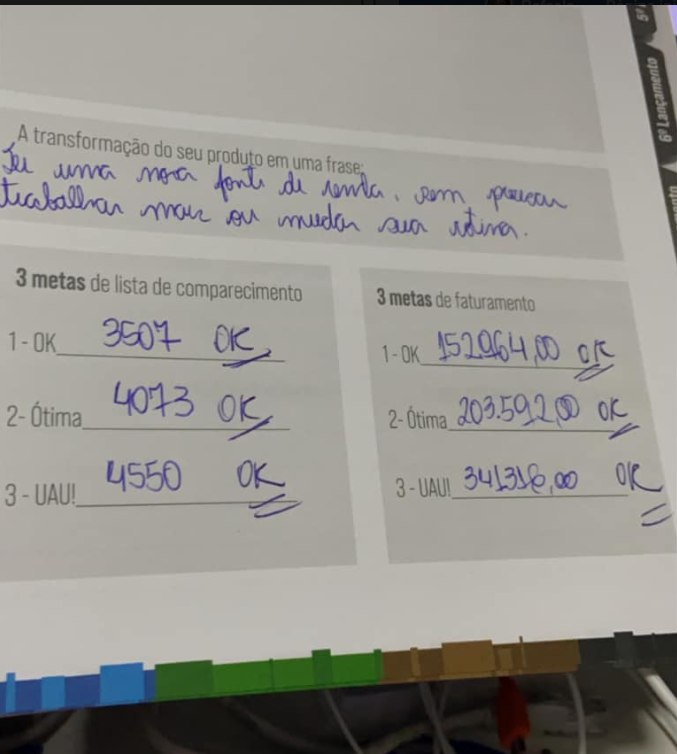 5º
6º Lançamento
A transformação do seu produto em uma frase:
Ter uma nova fonte de renda, sem precisar
trabalhar mais ou mudar sua rotina.
3 metas de lista de comparecimento
1 - OK 3507 OK
2- Ótima 4073 OK
3 - UAU! 4550 OK
3 metas de faturamento
1 - OK 152.064,00 OK
2- Ótima 203.592,00 OK
3 - UAU! OK